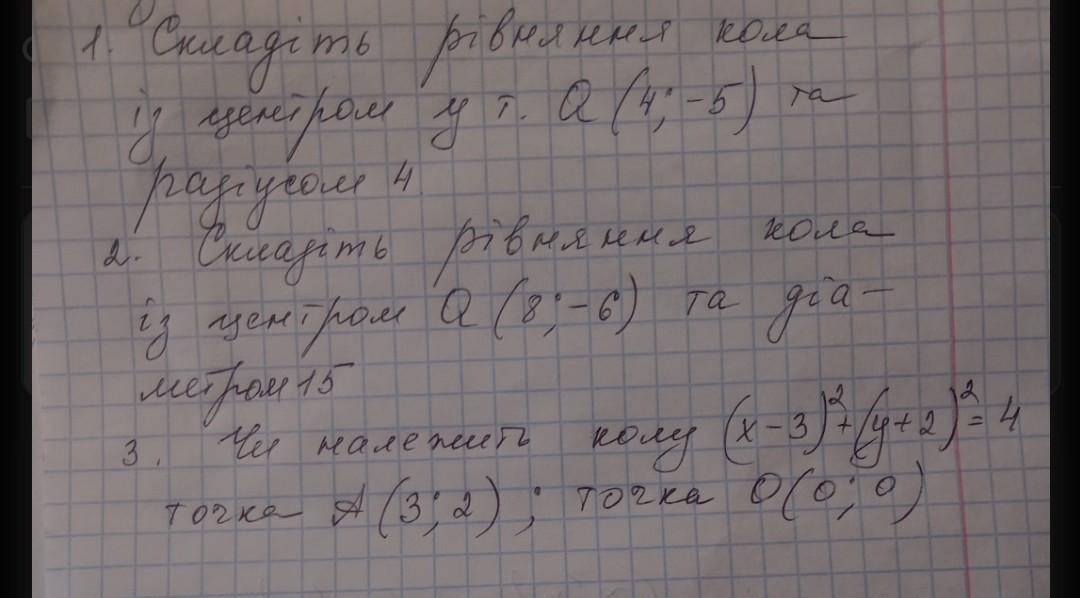 1. Складіть рівняння кола
із центром у т. Q (4; -5) та
радіусом 4.
2. Складіть рівняння кола
із центром Q (8; -6) та діа-
метром 15
3. Чи належить колу (x-3)²+(y+2)²= 4
точка A(3; 2) ; точка O(0; 0)